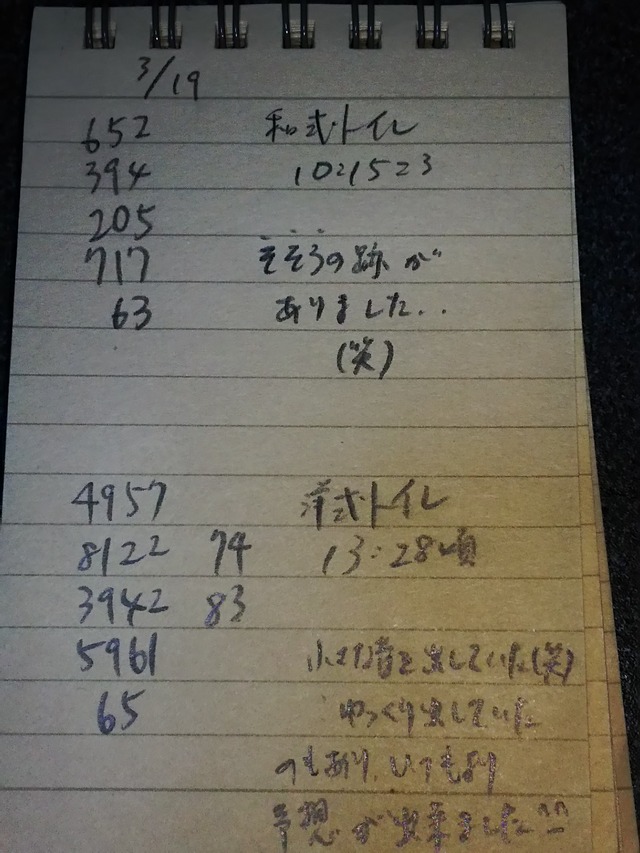 3/19
652 和式トイレ
394 1021523
205
717 そそうの跡が
63 ありました..
(笑)
4957 洋式トイレ
8122 74 13:28頃
3942 83
5961 小さな音を出していた(笑)
65 ゆっくり出していた
のもあり、いつもより
予想が出来ました^^